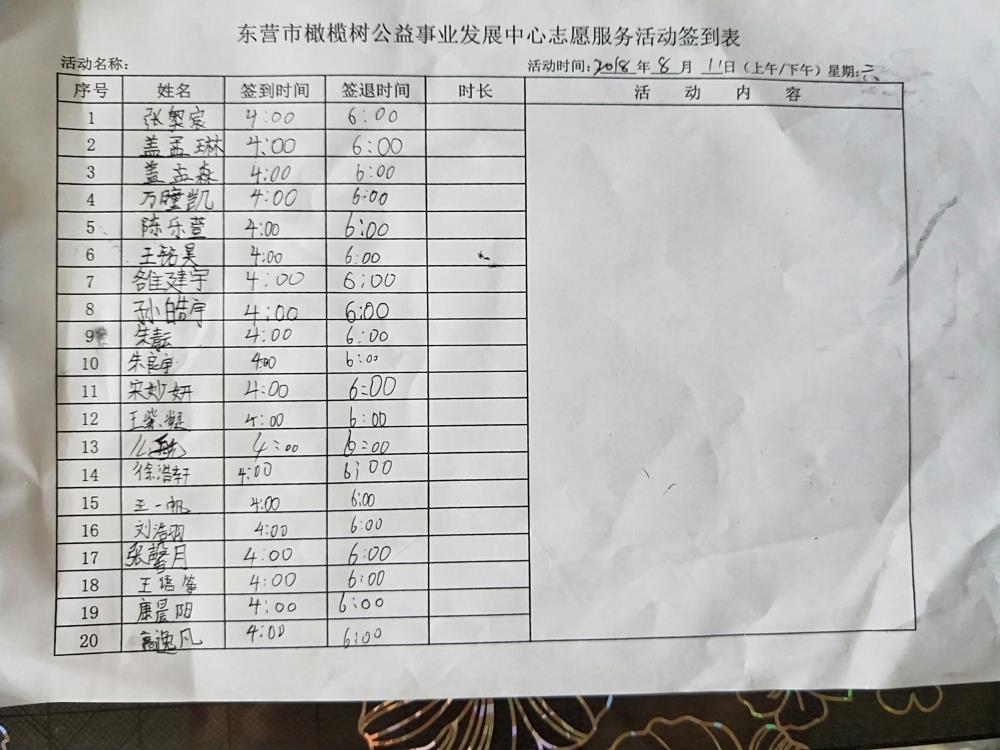 东营市橄榄树公益事业发展中心志愿服务活动签到表
活动名称： 活动时间：2018 年 8 月 11 日（上午/下午）星期：六
序号 姓名 签到时间 签退时间 时长 活动内容
1 张 宸 4:00 6:00
2 盖孟琳 4:00 6:00
3 盖孟森 4:00 6:00
4 万瞳凯 4:00 6:00
5 陈乐萱 4:00 6:00
6 王铭昊 4:00 6:00
7 建宇 4:00 6:00
8 孙皓宇 4:00 6:00
9 朱 4:00 6:00
10 朱良宇 4:00 6:00
11 宋妙妍 4:00 6:00
12 王紫 4:00 6:00
13 4:00 6:00
14 徐浩轩 4:00 6:00
15 王一帆 4:00 6:00
16 刘浩羽 4:00 6:00
17 张馨月 4:00 6:00
18 王语 4:00 6:00
19 康晨阳 4:00 6:00
20 高逸凡 4:00 6:00